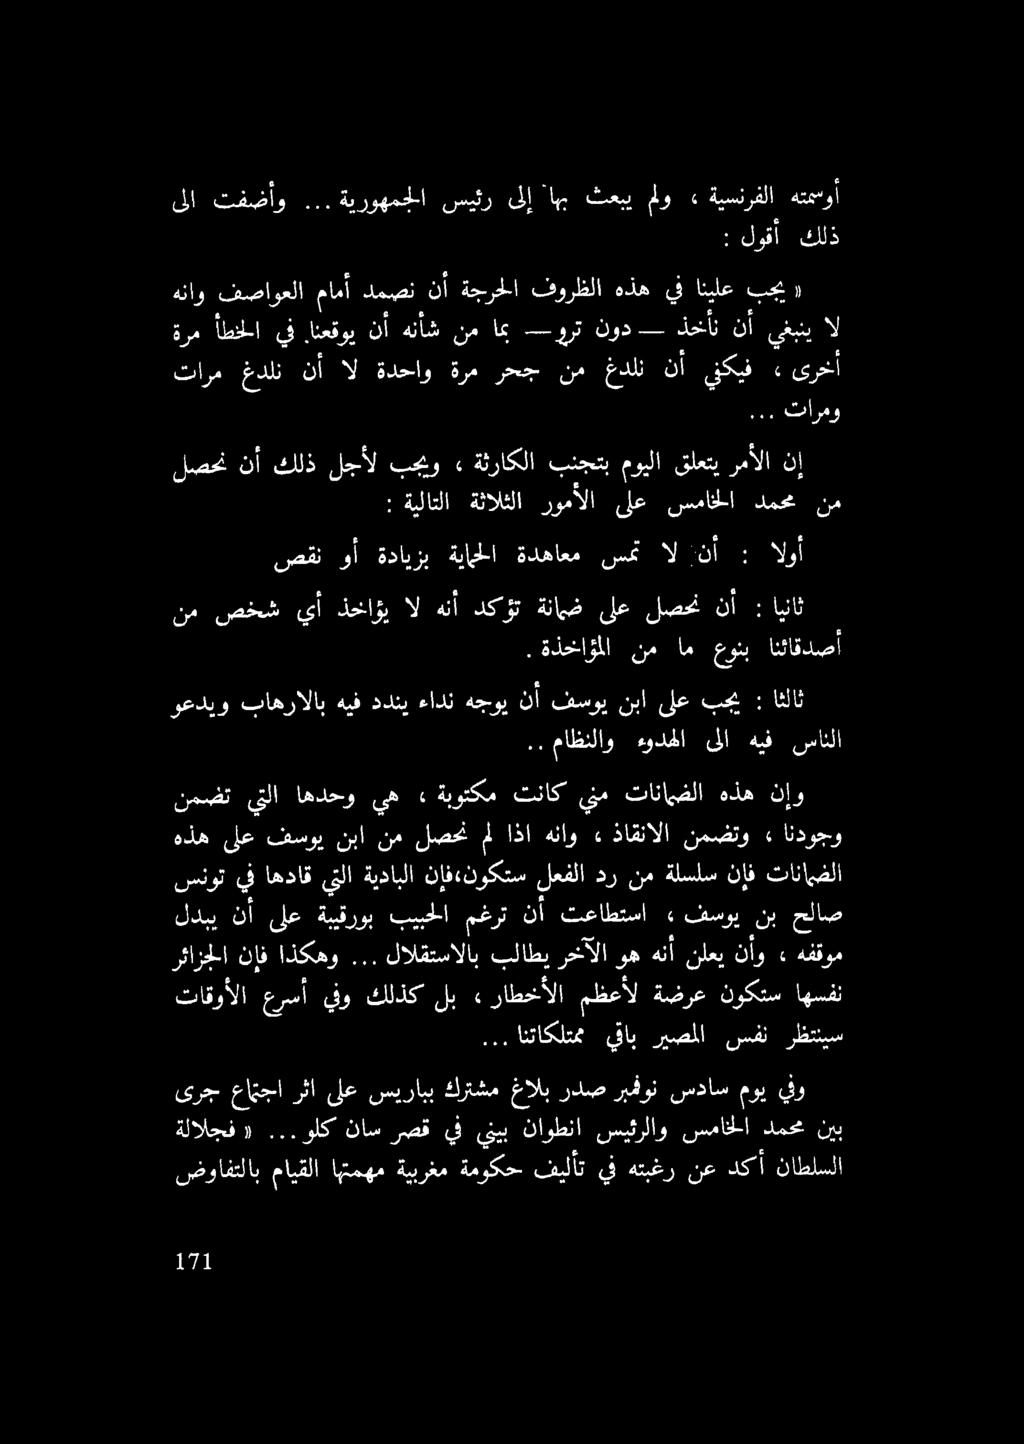 أوسمته الفرنسية ، ولم يبعث بها إلى رئيس الجمهورية ... وأضفت الى
ذلك أقول :
« يجب علينا في هذه الظروف الحرجة أن نصمد أمام العواصف وانه
لا ينبغي أن نأخذ — دون ترو — بما من شأنه أن يوقعنا. في الخطأ مرة
أخرى ، فيكفي أن نلدغ من جحر مرة واحدة لا أن نلدغ مرات
ومرات ...
إن الأمر يتعلق اليوم بتجنب الكارثة ، ويجب لأجل ذلك أن نحصل
من محمد الخامس على الأمور الثلاثة التالية :
أولا : أن لا تمس معاهدة الحماية بزيادة أو نقص
ثانيا : أن نحصل على ضمانة تؤكد أنه لا يؤاخذ أي شخص من
أصدقائنا بنوع ما من المؤاخذة .
ثالثا : يجب على ابن يوسف أن يوجه نداء يندد فيه بالارهاب ويدعو
الناس فيه الى الهدوء والنظام ..
وإن هذه الضمانات مني كانت مكتوبة ، هي وحدها التي تضمن
وجودنا ، وتضمن الانقاذ ، وانه اذا لم نحصل من ابن يوسف على هذه
الضمانات فإن سلسلة من رد الفعل ستكون،فإن البادية التي قادها في تونس
صالح بن يوسف ، استطاعت أن ترغم الحبيب بورقيبة على أن يبدل
موقفه ، وأن يعلن أنه هو الآخر يطالب بالاستقلال ... وهكذا فإن الجزائر
نفسها ستكون عرضة لأعظم الأخطار ، بل كذلك وفي أسرع الأوقات
سينتظر نفس المصير باقي ممتلكاتنا ...
وفي يوم سادس نوفمبر صدر بلاغ مشترك بباريس على اثر اجتماع جرى
بين محمد الخامس والرئيس انطوان بيني في قصر سان كلو ... « فجلالة
السلطان أكد عن رغبته في تأليف حكومة مغربية مهمتها القيام بالتفاوض
171